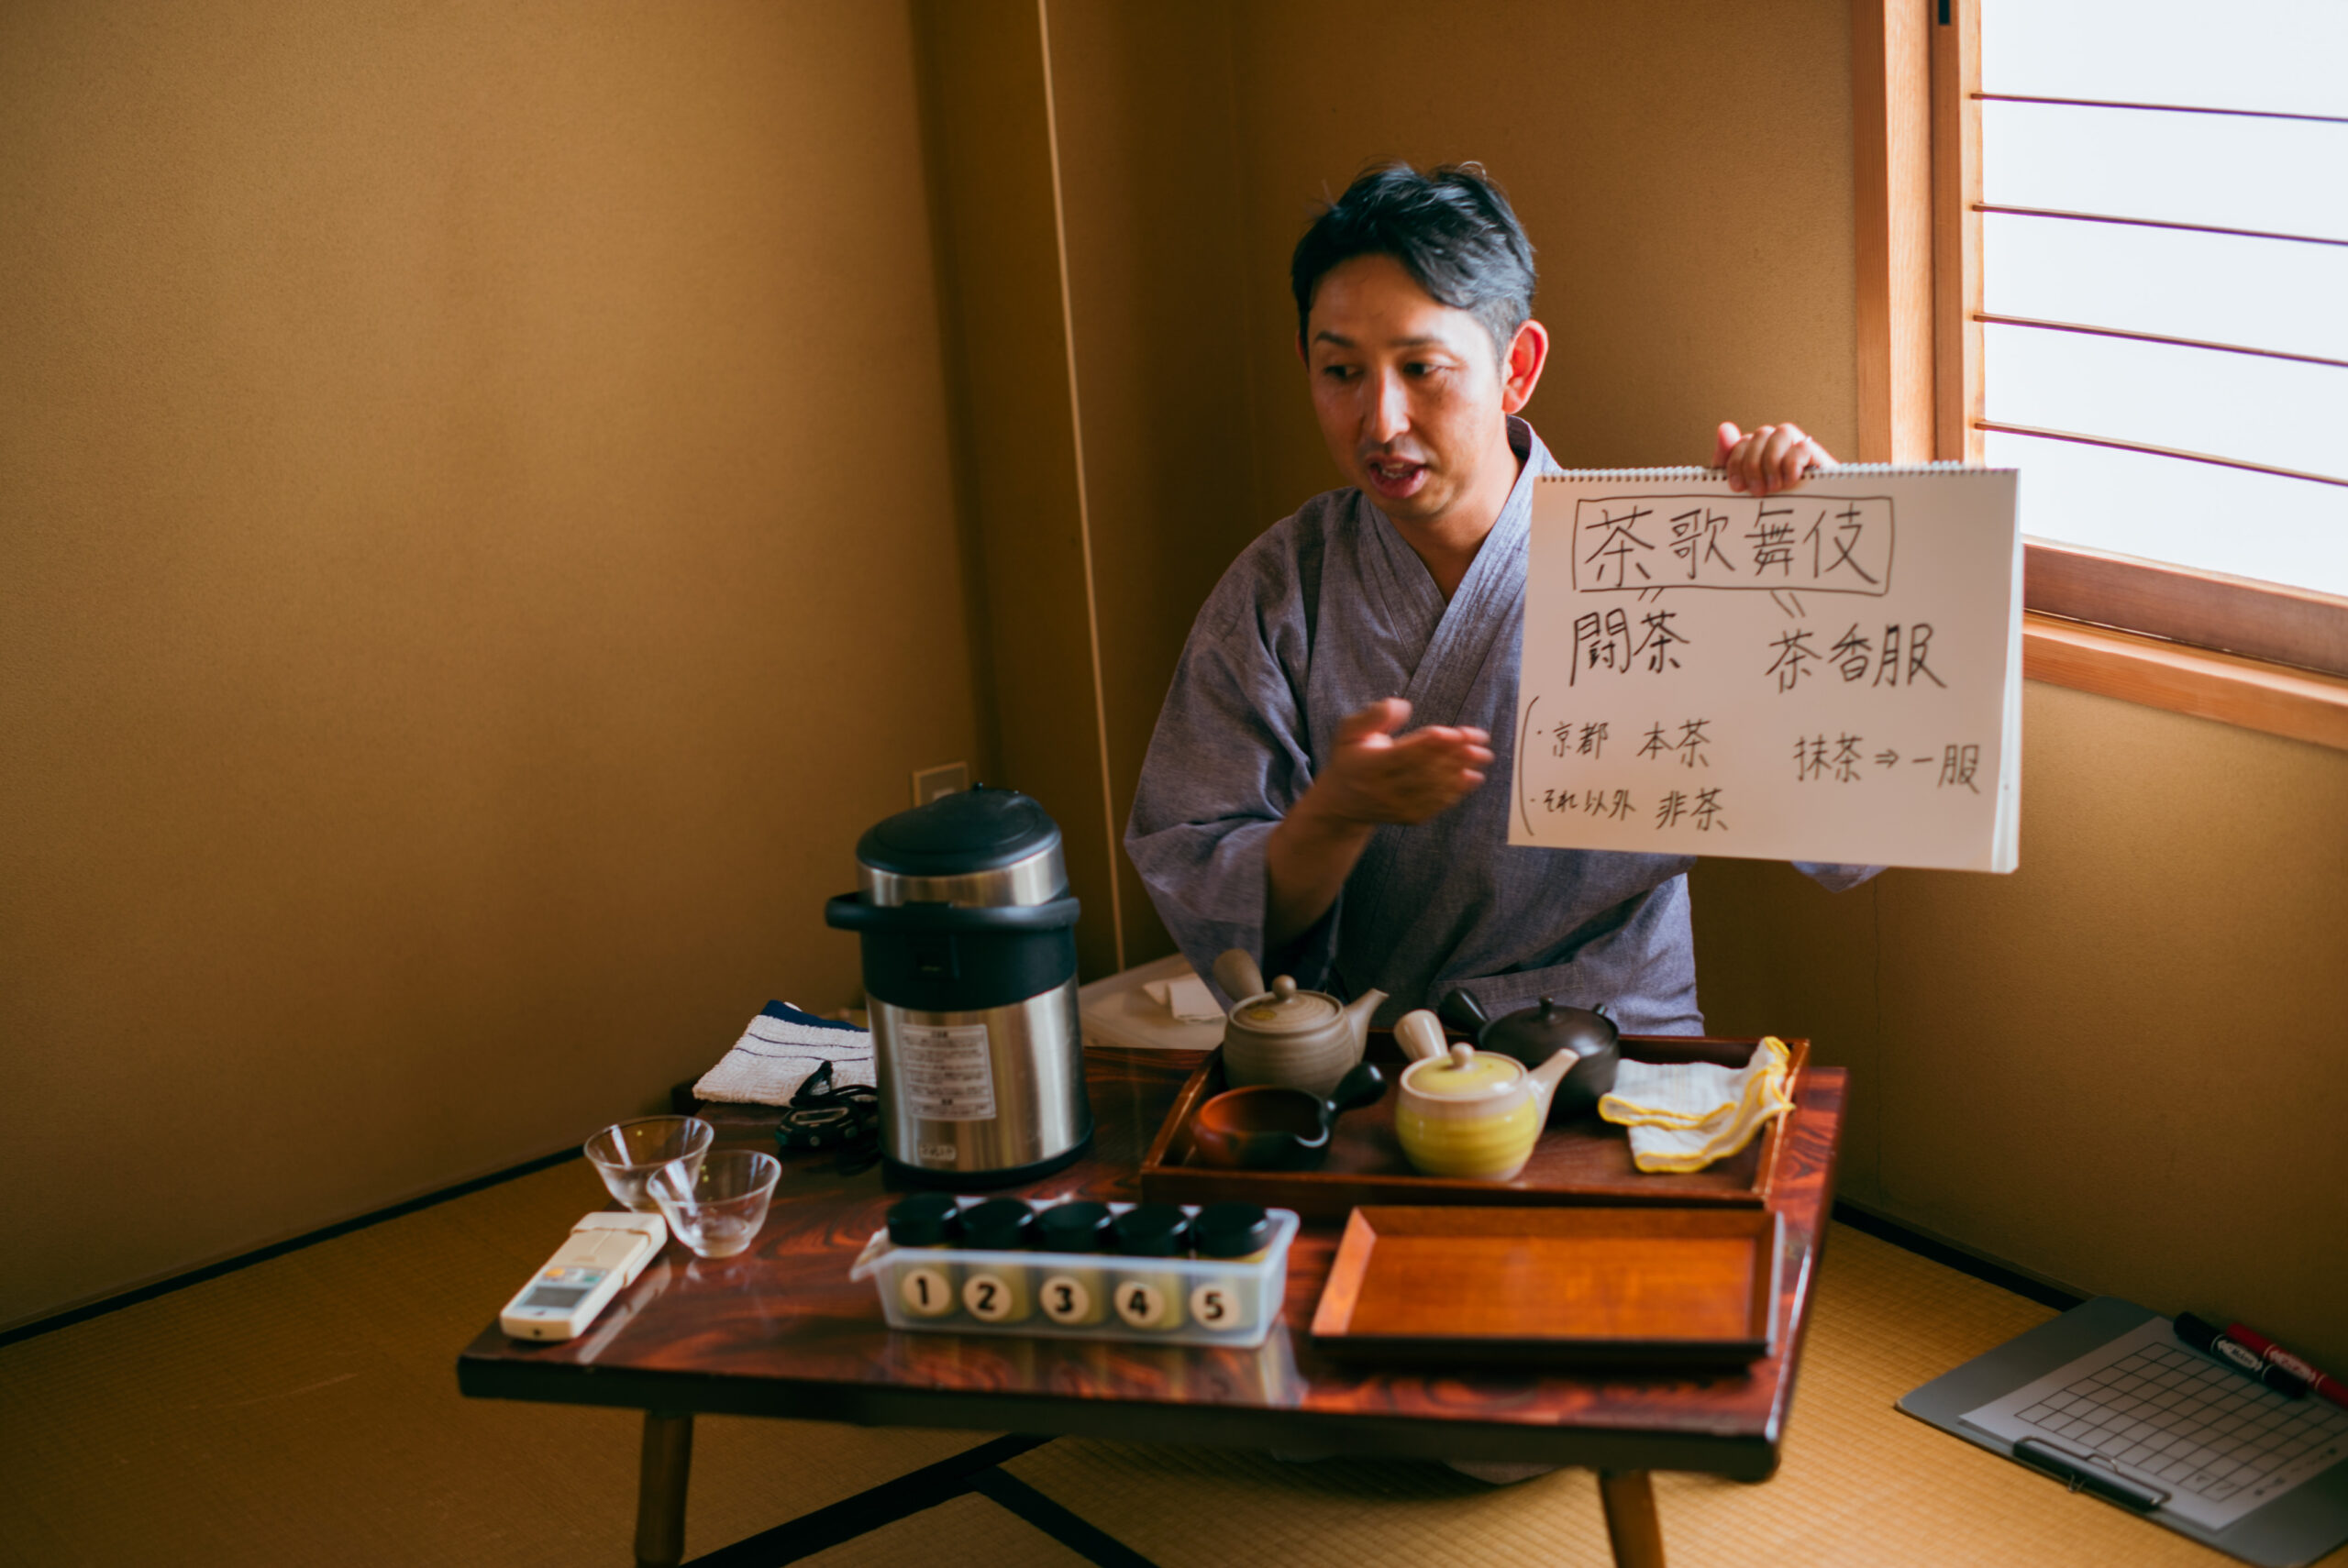 茶歌舞伎
闘茶 茶香服
・京都 本茶 抹茶⇒一服
・それ以外 非茶
1 2 3 4 5